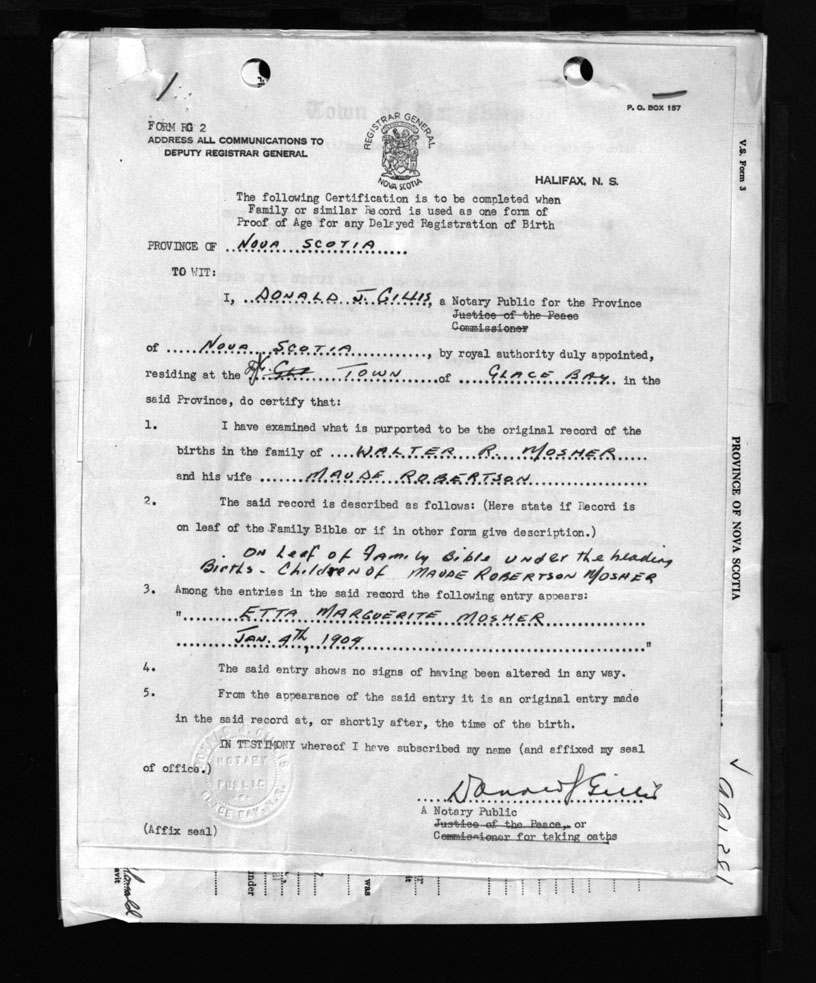 P. O. BOX 157
FORM RG 2
ADDRESS ALL COMMUNICATIONS TO
DEPUTY REGISTRAR GENERAL
REGISTRAR GENERAL
NOVA SCOTIA
HALIFAX, N. S.
The following Certification is to be completed when
Family or similar Record is used as one form of
Proof of Age for any Delayed Registration of Birth
PROVINCE OF NOVA SCOTIA
TO WIT:
I, DONALD J. GILLIS, a Notary Public for the Province
Justice of the Peace
Commissioner
of NOVA SCOTIA, by royal authority duly appointed,
residing at the TOWN of GLACE BAY in the
said Province, do certify that:
1. I have examined what is purported to be the original record of the
births in the family of WALTER R. MOSHER
and his wife MAUDE ROBERTSON
2. The said record is described as follows: (Here state if Record is
on leaf of the Family Bible or if in other form give description.)
ON Leaf of Family Bible under the heading
Births - Children of MAUDE ROBERTSON MOSHER
3. Among the entries in the said record the following entry appears:
" ETTA MARGUERITE MOSHER
JAN. 9th, 1909 "
4. The said entry shows no signs of having been altered in any way.
5. From the appearance of the said entry it is an original entry made
in the said record at, or shortly after, the time of the birth.
IN TESTIMONY whereof I have subscribed my name (and affixed my seal
of office.)
NOTARY
PUBLIC
GLACE BAY, N.S.
Donald J Gillis
A Notary Public
Justice of the Peace, or
Commissioner for taking oaths
(Affix seal)
V.S. Form 3
PROVINCE OF NOVA SCOTIA
under
was